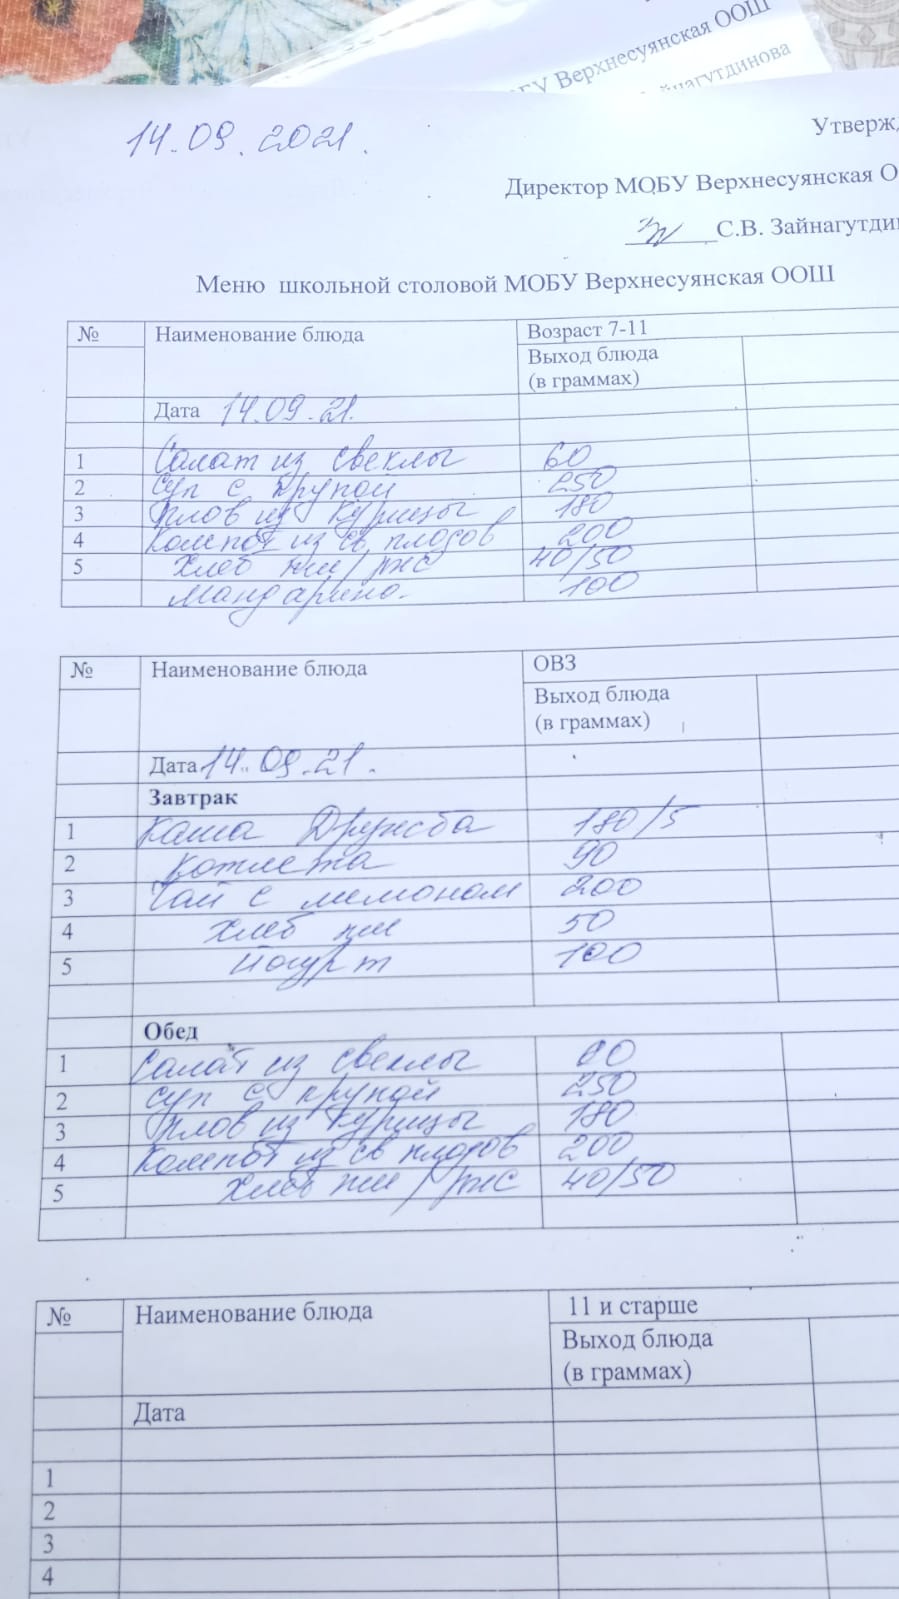 Верхнесуянская ООШ
14.09.2021.
Утверж
Директор МОБУ Верхнесуянская О
С.В. Зайнагутди
Меню школьной столовой МОБУ Верхнесуянская ООШ
№ Наименование блюда Возраст 7-11
Выход блюда
(в граммах)
Дата 14.09.21.
1 Салат из свеклы 60
2 Суп с крупой 250
3 Плов из курицы 180
4 Компот из св плодов 200
5 Хлеб пш/ржс 40/50
Мандарино. 100
№ Наименование блюда ОВЗ
Выход блюда
(в граммах)
Дата 14.09.21.
Завтрак
1 Каша Дружба 180/5
2 Котлета 90
3 Чай с лимоном 200
4 Хлеб пш 50
5 Йогурт 100
Обед
1 Салат из свеклы
2 Суп с крупой 250
3 Плов из курицы 180
4 Компот из св плодов 200
5 Хлеб пш/ржс 40/50
№ Наименование блюда 11 и старше
Выход блюда
(в граммах)
Дата
1
2
3
4